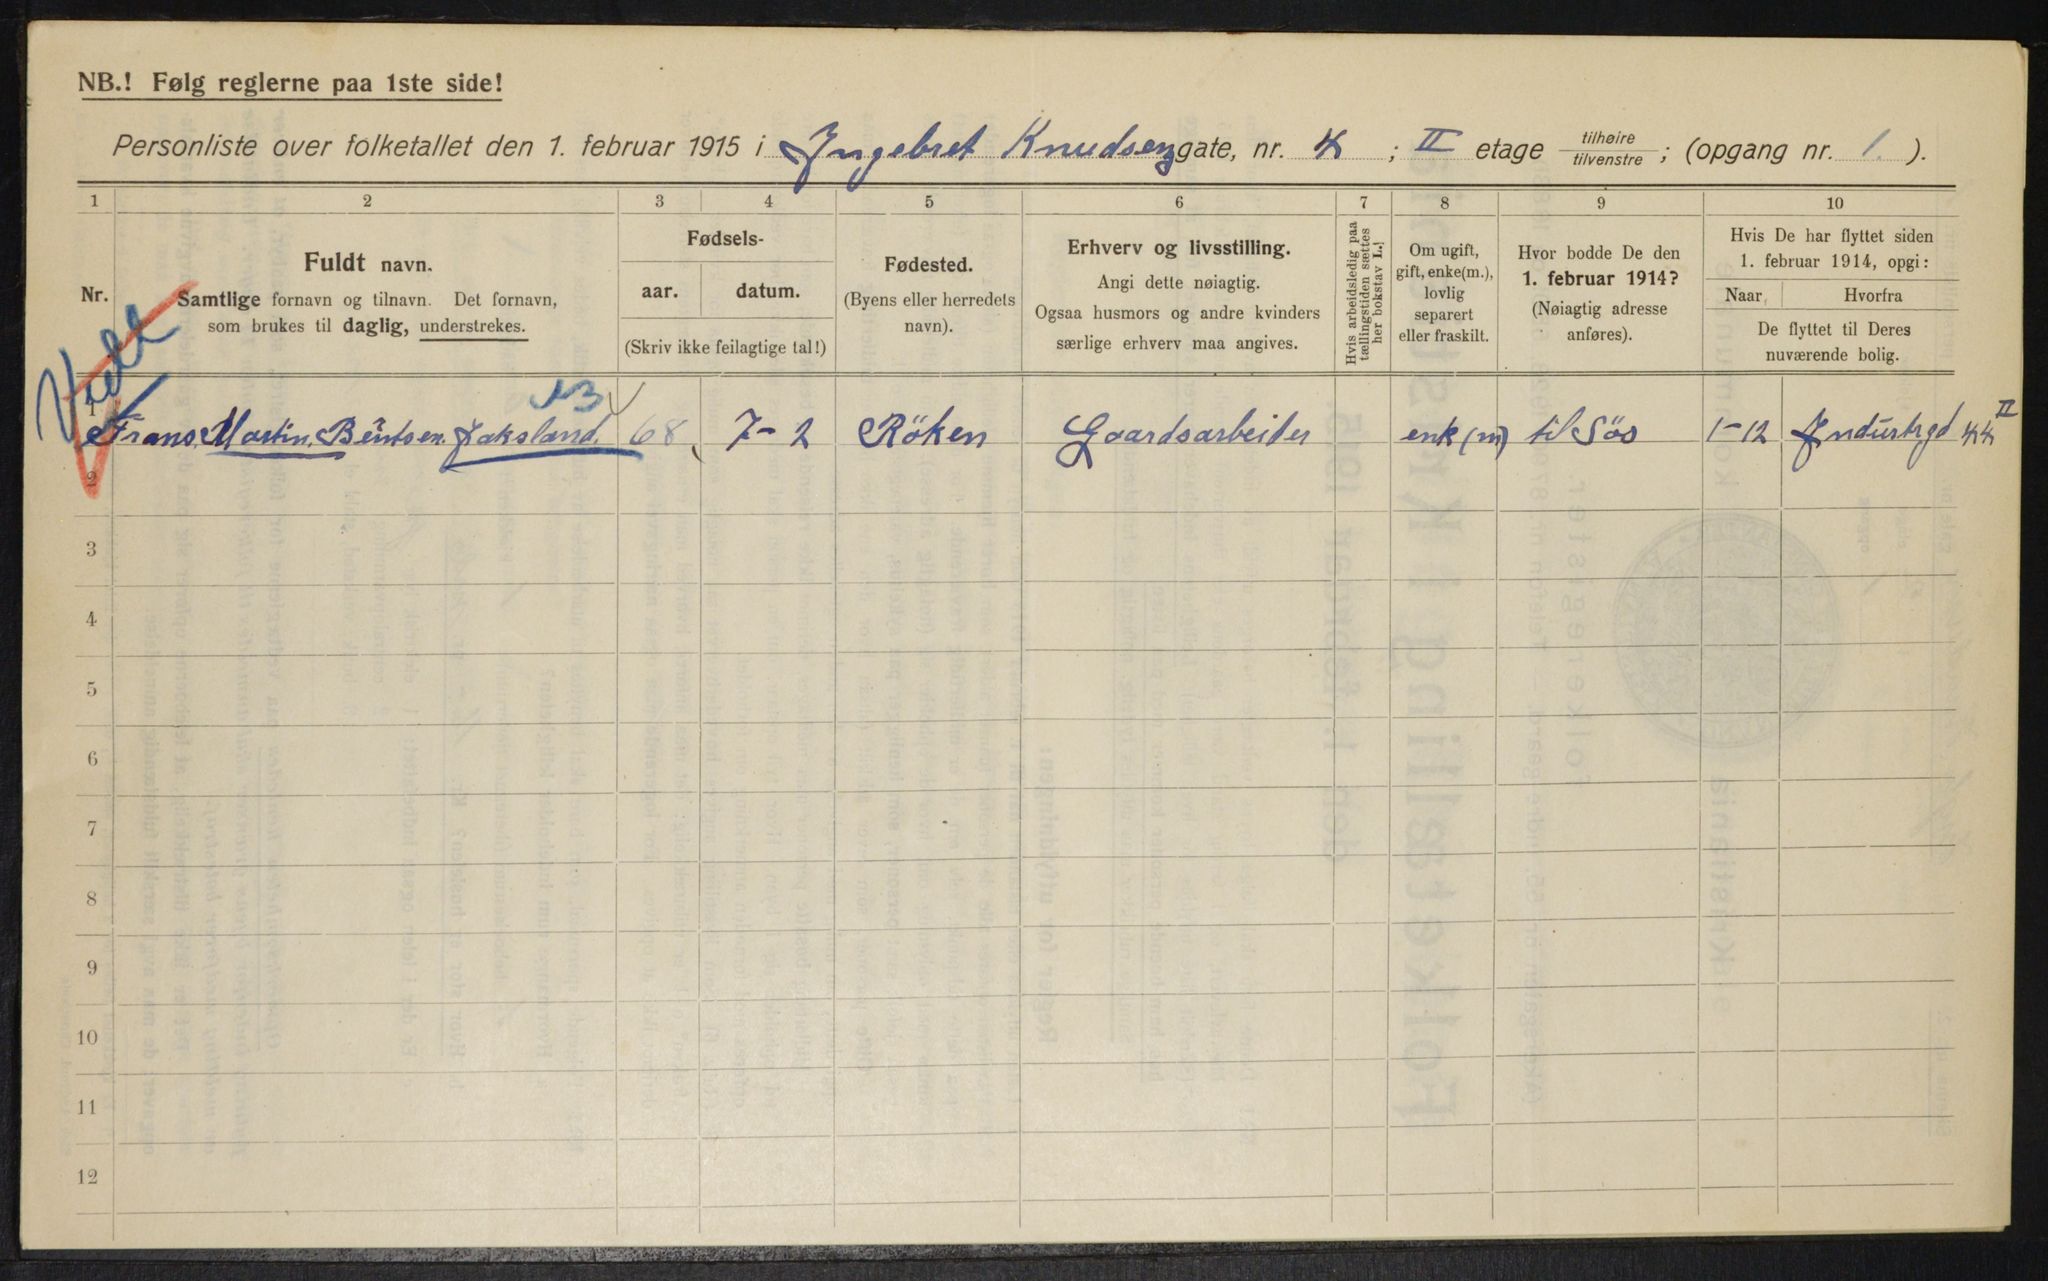 NB.! Følg reglerne paa 1ste side!
Personliste over folketallet den 1. februar 1915 i Ingebret Knudsens gate, nr. 4 ; II etage tilhøire / tilvenstre ; (opgang nr. 1. ).
1 2 3 4 5 6 7 8 9 10
Nr.
Fuldt navn.
Samtlige fornavn og tilnavn. Det fornavn,
som brukes til daglig, understrekes.
Fødsels-
aar. datum.
(Skriv ikke feilagtige tal!)
Fødested.
(Byens eller herredets
navn).
Erhverv og livsstilling.
Angi dette nøiagtig.
Ogsaa husmors og andre kvinders
særlige erhverv maa angives.
Hvis arbeidsledig paa
tællingstiden sættes
her bokstav L.!
Om ugift,
gift, enke(m.),
lovlig
separert
eller fraskilt.
Hvor bodde De den
1. februar 1914?
(Nøiagtig adresse
anføres).
Hvis De har flyttet siden
1. februar 1914, opgi:
Naar. Hvorfra
De flyttet til Deres
nuværende bolig.
1 Frans Martin Bentsen Jaksland. 68 7-2 Röken Gaardsarbeider enk(m) til Sös 1-12 Industrgd 44 II
2
3
4
5
6
7
8
9
10
11
12